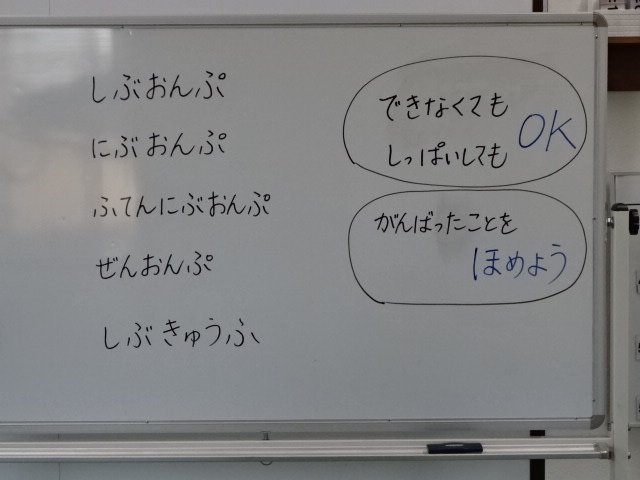 しぶおんぷ
にぶおんぷ
ふてんにぶおんぷ
ぜんおんぷ
しぶきゅうふ
できなくても
しっぱいしても
OK
がんばったことを
ほめよう